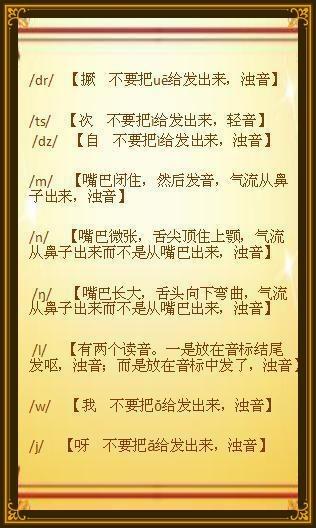 /dr/ 【撅 不要把uē给发出来，浊音】
/ts/ 【次 不要把i给发出来，轻音】
/dz/ 【自 不要把i给发出来，浊音】
/m/ 【嘴巴闭住，然后发音，气流从鼻
子出来，浊音】
/n/ 【嘴巴微张，舌尖顶住上颚，气流
从鼻子出来而不是从嘴巴出来，浊音】
/ŋ/ 【嘴巴长大，舌头向下弯曲，气流
从鼻子出来而不是从嘴巴出来，浊音】
/l/ 【有两个读音。一是放在音标结尾
发呕，浊音；而是放在音标中发了，浊音】
/w/ 【我 不要把ǒ给发出来，浊音】
/j/ 【呀 不要把ā给发出来，浊音】